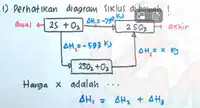 1) Perhatikan diagram siklus dibawah !
awal → 2S + O₂ ΔH₁ = -790 KJ 2SO₃ → akhir
ΔH₂ = -593 KJ
ΔH₃ = x KJ
2SO₂ + O₂
Harga x adalah ...
ΔH₁ = ΔH₂ + ΔH₃